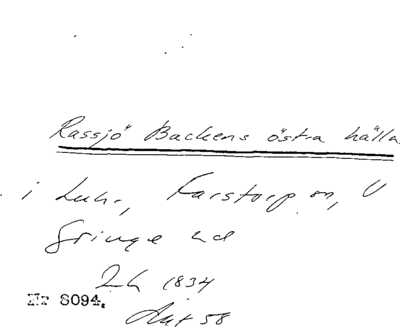 Rassjö Backens östra hälla
i Luhr, Farstorp sn, V
Göinge hd
Lh 1834
Nr S094. Akt 58